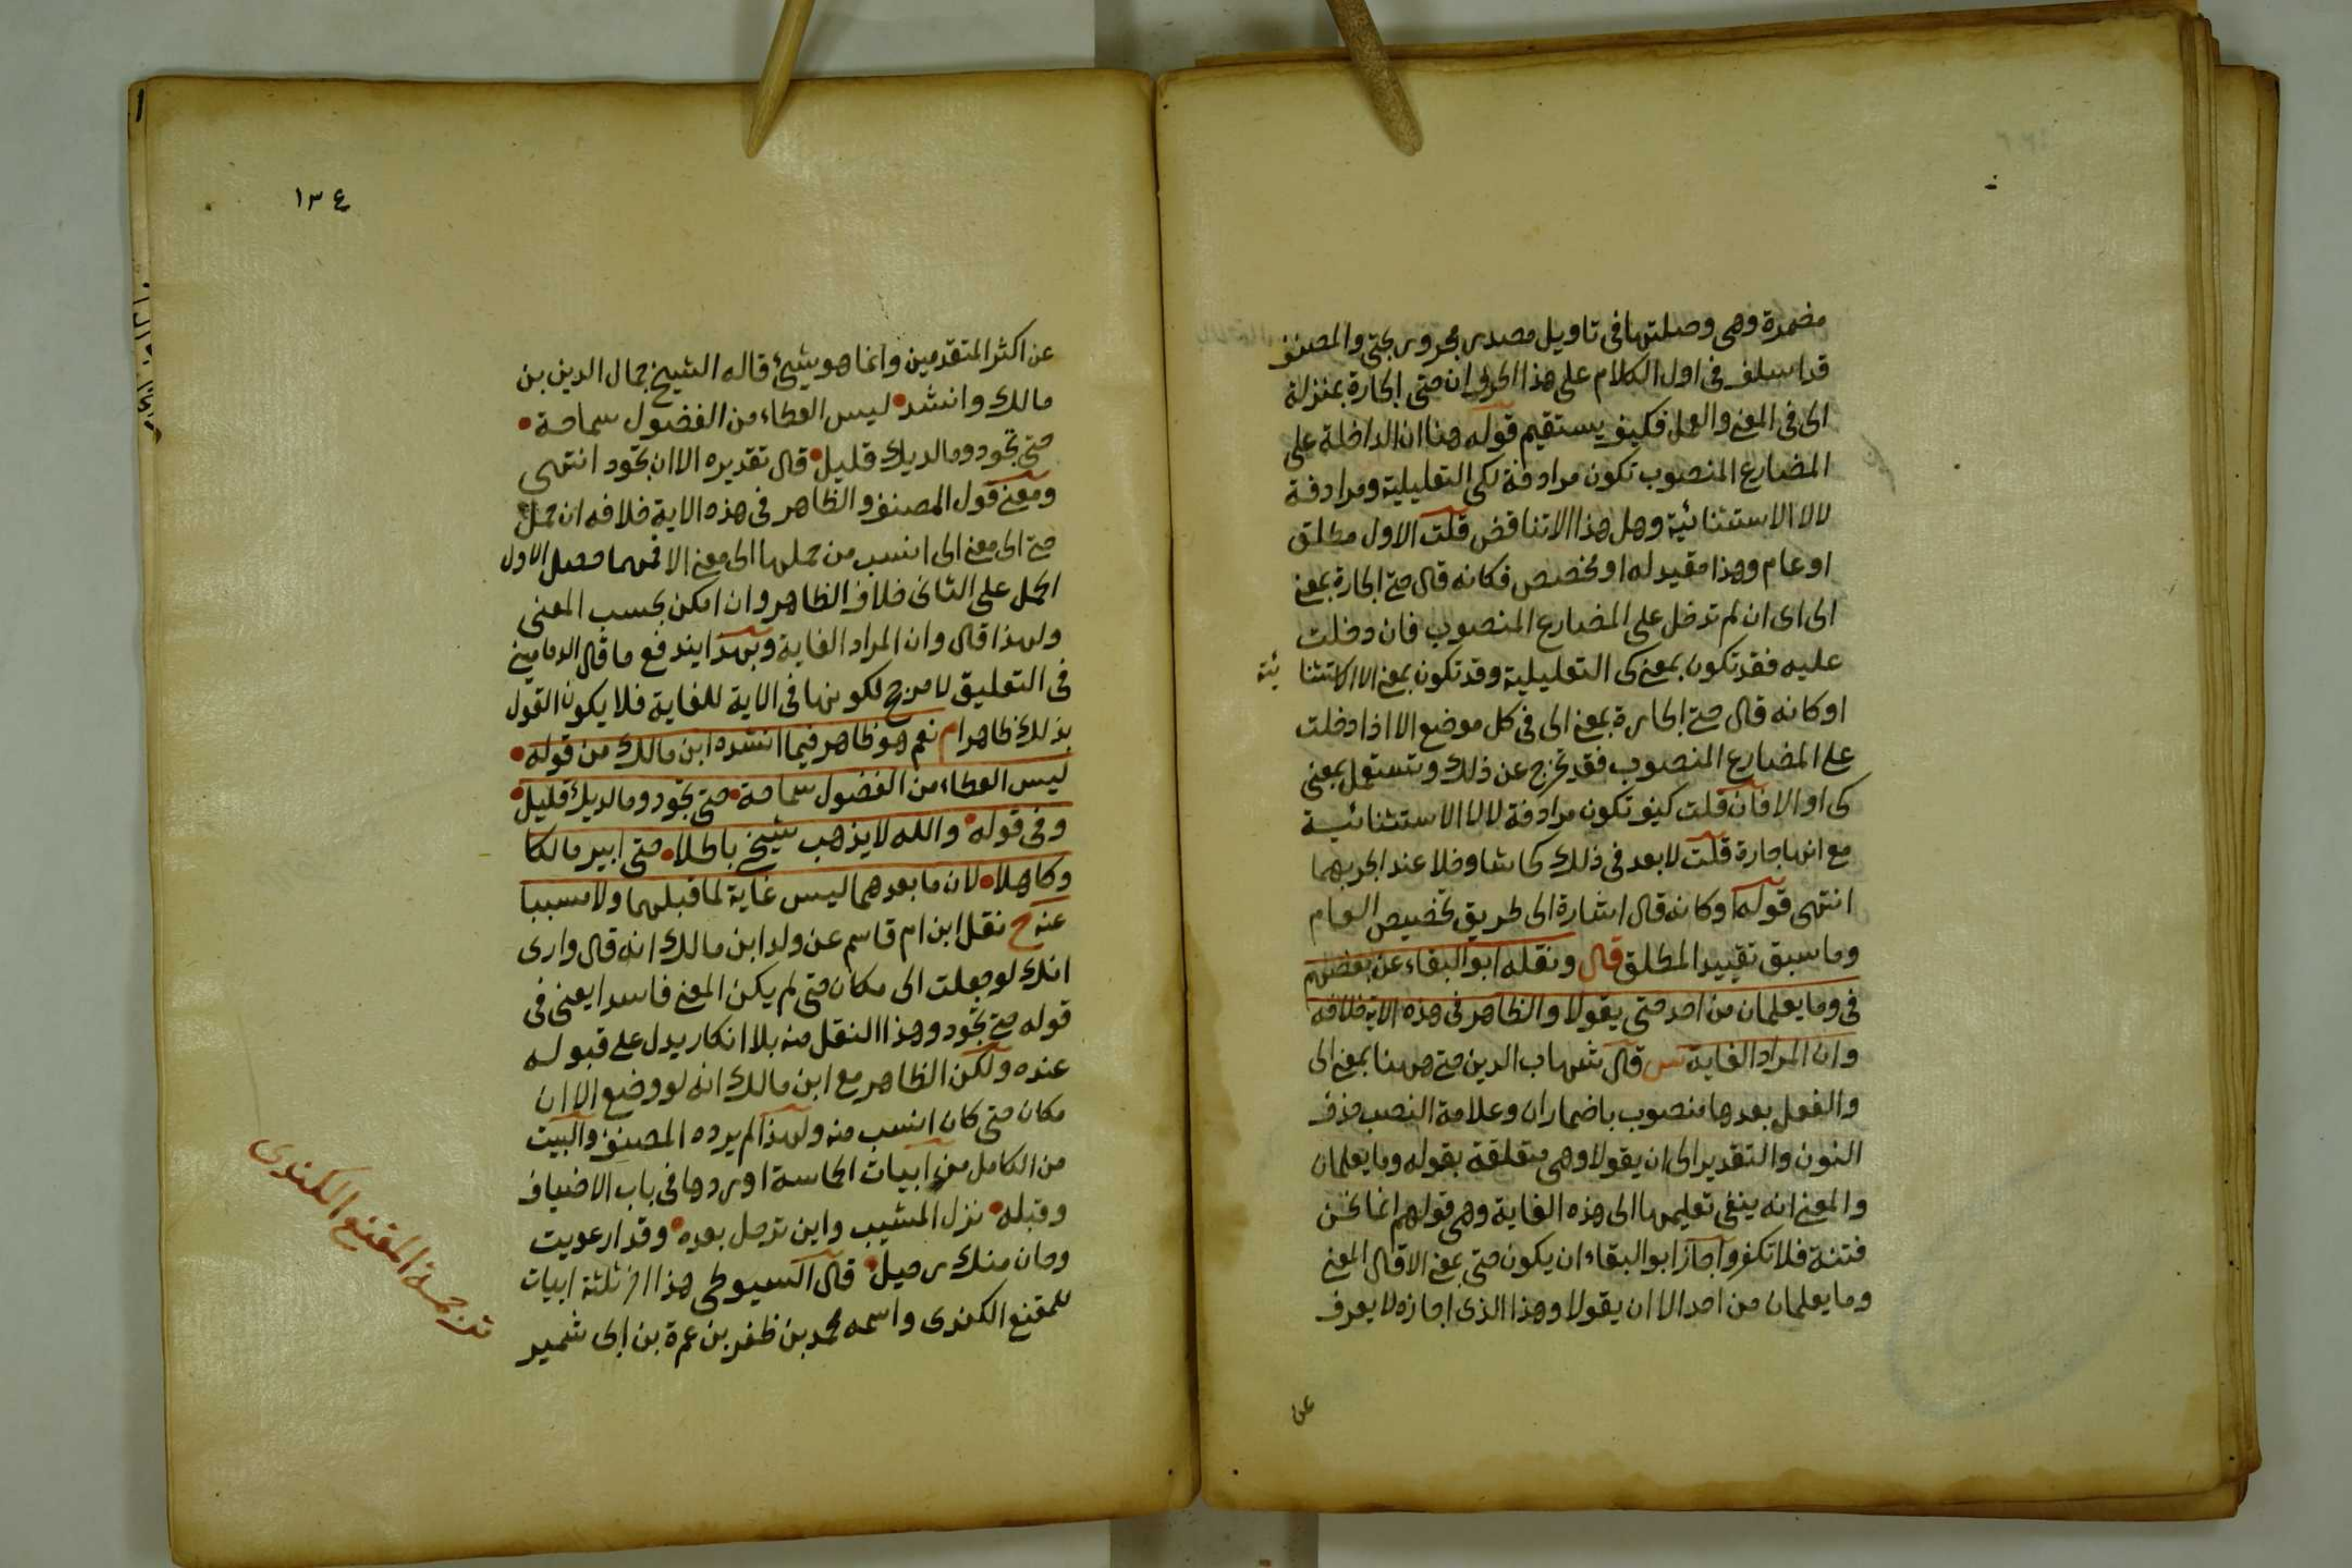 مضمرة وهى وصلتها فى تاويل مصدر مجرور بحتى والمصنف
قد اسلف فى اول الكلام على هذا الحرف ان حتى الجارة بمنزلة
الى فى المعنى والعمل فكيف يستقيم قوله هنا ان الداخلة على
المضارع المنصوب تكون مرادفة لكى التعليلية ومرادفة
لالا الاستثنائية وهل هذا الا تناقض قلت الاول مطلق
او عام وهذا مقيد له او مخصص فكانه قال حتى الجارة بمعنى
الى اى ان لم تدخل على المضارع المنصوب فان دخلت
عليه فقد تكون بمعنى كى التعليلية وقد تكون بمعنى الا الاستثنا ئية
او كانه قال حتى الجارة بمعنى الى فى كل موضع الا اذا دخلت
على المضارع المنصوب فقد تخرج عن ذلك وتستعمل بمعنى
كى او الا فان قلت كيف تكون مرادفة لالا الاستثنائية
مع انها جارة قلت لا بعد فى ذلك كحاشا وخلا عند الجر بهما
انتهى قوله او كانه قال اشارة الى طريق تخصيص العام
وما سبق تقييد المطلق قال ونقله ابو البقاء عن بعضهم
فى وما يعلمان من احد حتى يقولا والظاهر فى هذه الاية خلافه
وان المراد الغاية س قال شهاب الدين حتى ههنا بمعنى الى
والفعل بعدها منصوب باضمار ان وعلامة النصب حذف
النون والتقدير الى ان يقولا وهى متعلقة بقوله وما يعلمان
والمعنى انه ينفى تعليمها الى هذه الغاية وهى قولهم انما نحن
فتنة فلا تكفر واجاز ابو البقاء ان يكون حتى بمعنى الا قال المعنى
وما يعلمان من احد الا ان يقولا وهذا الذى اجازه لا يعرف
عن
١٣٤
عن اكثر المتقدمين وانما هو شيئ قاله الشيخ جمال الدين بن
مالك وانشد ليس العطاء من الفضول سماحة
حتى تجود وما لديك قليل قال تقديره الا ان تجود انتهى
ومعنى قول المصنف والظاهر فى هذه الاية خلافه ان حمل
حتى الى معنى الى انسب من حملها الى معنى الا فمهما حصل الاول
الحمل على الثانى خلاف الظاهر وان امكن بحسب المعنى
ولهذا قال وان المراد الغاية وبهذا يندفع ما قال الدمامينى
فى التعليق لا مرجح لكونها فى الاية للغاية فلا يكون القول
بذلك ظاهرا م نعم هو ظاهر فيما انشده ابن مالك من قوله
ليس العطاء من الفضول سماحة حتى تجود وما لديك قليل
وفى قوله والله لا يذهب شيخى باطلا حتى ابير مالكا
وكاهلا لان ما بعدهما ليس غاية لما قبلهما ولا مسببا
عنه ح نقل ابن ام قاسم عن ولد ابن مالك انه قال وارى
انك لو جعلت الى مكان حتى لم يكن المعنى فاسدا يعنى فى
قوله حتى تجود وهذا النقل منه بلا انكار يدل على قبوله
عنده ولكن الظاهر مع ابن مالك انه لو وضع الا ان
مكان حتى كان انسب منه ولهذا لم يرده المصنف والبيت
من الكامل من ابيات الحماسة اوردها فى باب الاضياف
وقبله نزل المشيب واين ترحل بعده وقد ارعويت
وحان منك رحيل قال السيوطى هذا اخر ثلثة ابيات
للمقنع الكندى واسمه محمد بن ظفر بن عمرة بن ابى شمير
ترجمة المقنع الكندى